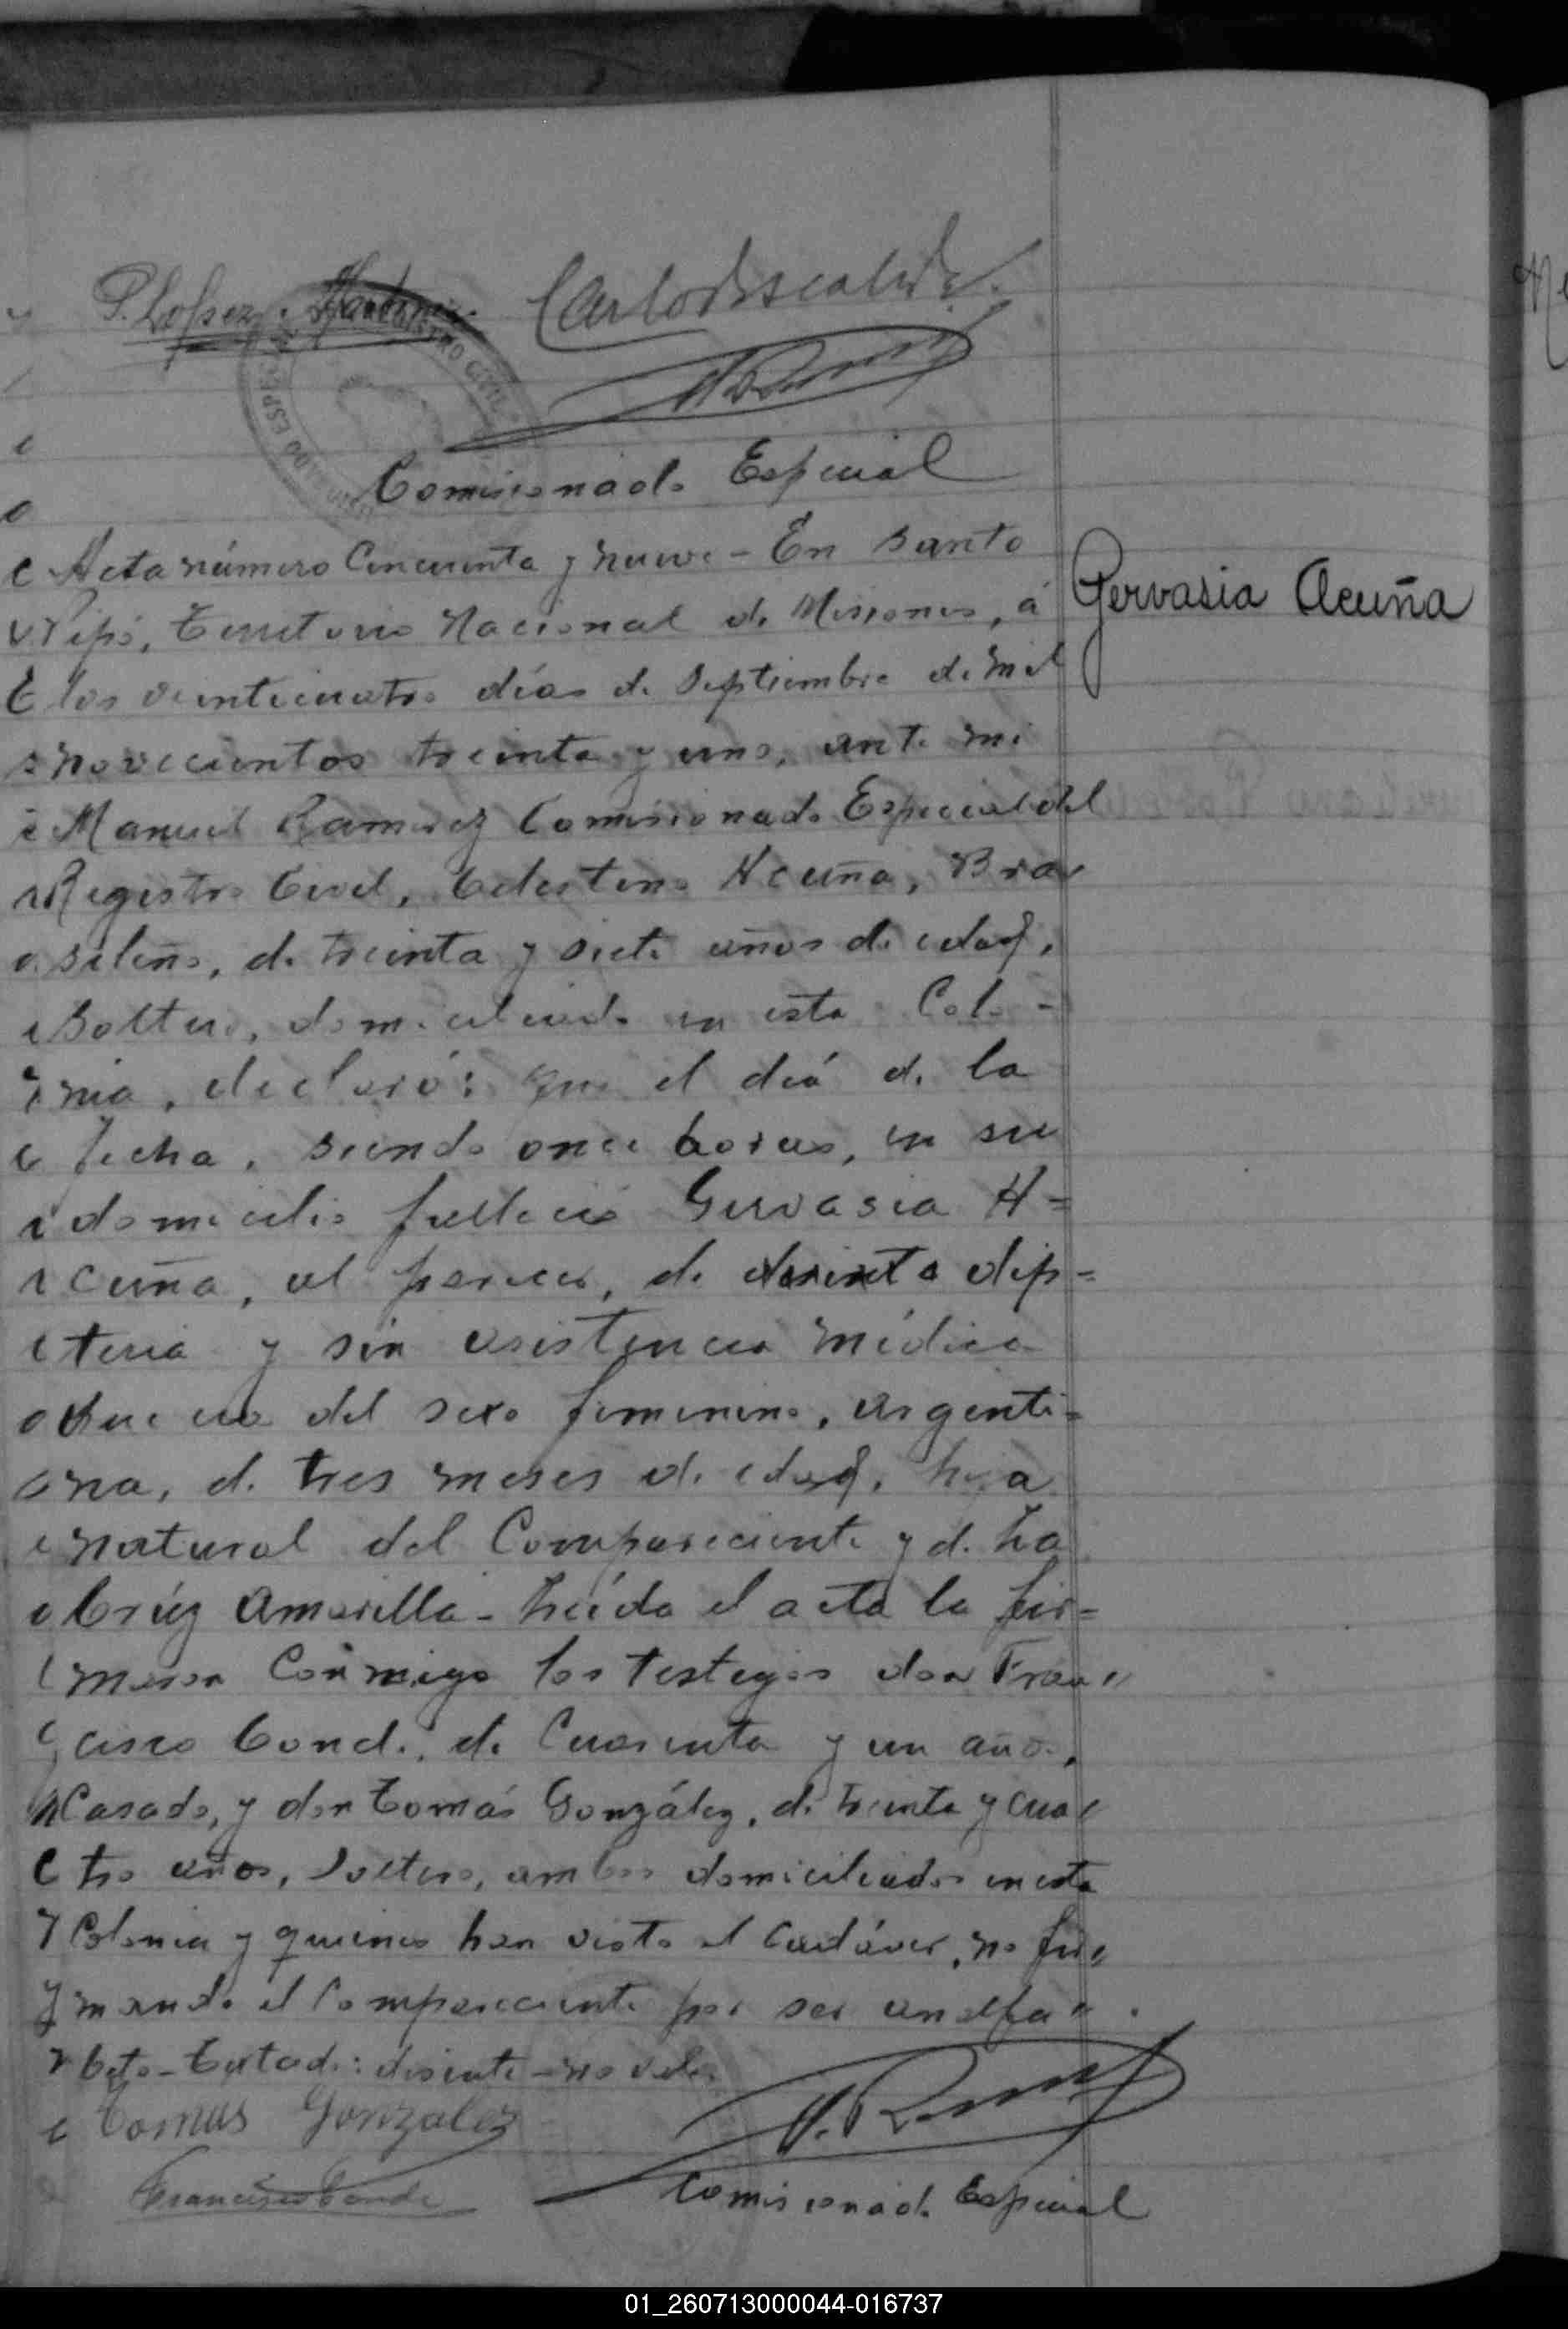 P. Lopez Martinez
Carlos Escalada
REGISTRO CIVIL
Comisionado Especial
Acta número Cincuenta y nueve - En Santo
Pipó, Territorio Nacional de Misiones, á
los veinticuatro días de Septiembre de mil
novecientos treinta y uno, ante mi
Manuel Ramirez Comisionado Especial del
Registro Civil, Celestino Acuña, Bra
sileño, de treinta y siete años de edad,
Soltero, domiciliado en esta Colo-
nia, declaró: que el diá de la
fecha, siendo once horas, en su
domicilio falleció Gervasia A=
cuña, al parecer, de disinte dip=
teria y sin asistencia médica
Que era del sexo femenino, argenti=
na, de tres meses de edad, hija
natural del Compareciente y de La
Crúz Amarilla - Leída el acta la fir=
maron Conmigo los testigos don Fran"
cisco Conde, de Cuarenta y un años,
Casado, y don Tomás González, de treinta y cua"
tro años, Soltero, ambos domiciliados en esta
Colonia y quienes han visto el Cadáver, no fir"
mando el Compareciente por ser analfa"
beto - Testado: disinte - no vale.
Tomas Gonzalez
Francisco Conde
Comisionado Especial
Gervasia Acuña
01_260713000044-016737